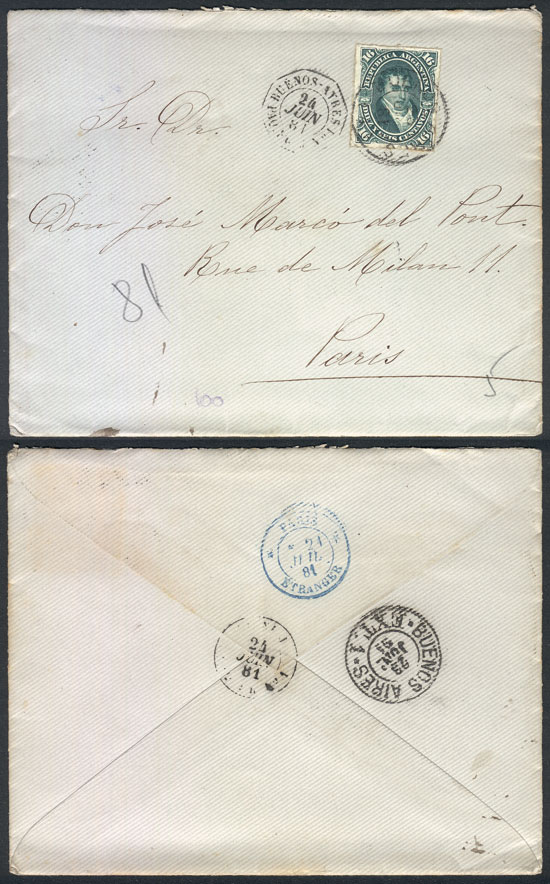 16 16
REPUBLICA ARGENTINA
DIEZ Y SEIS CENTAVOS
16 16
BUENOS-AYRES
24
JUIN
81
Sr. Dr.
Don José Marcó del Pont.
Rue de Milan 11.
81
Paris
5
100
PARIS
21
JUIL
81
ETRANGER
24
JUIN
81
BUENOS AIRES
EXT. 1
23
JUN
81